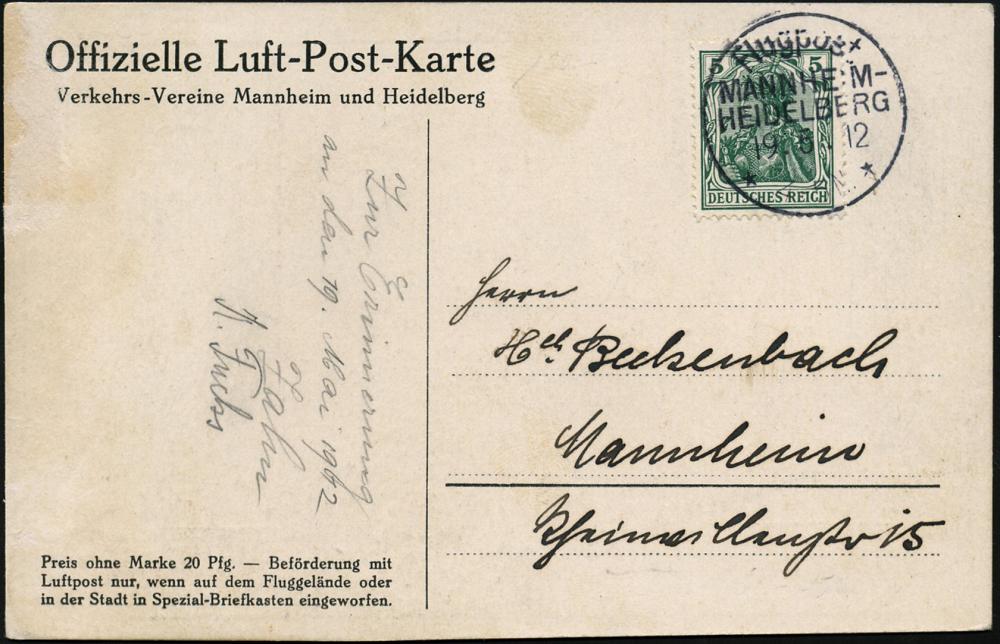 Offizielle Luft-Post-Karte
Verkehrs-Vereine Mannheim und Heidelberg
5 5
DEUTSCHES REICH
Flugpost
MANNHEIM-
HEIDELBERG
19. 5. 12
Zur Erinnerung
an den 19. Mai 1912
H. Fuchs
Herrn
Hch. Beckenbach
Mannheim
Rheinvillenstr 15
Preis ohne Marke 20 Pfg. — Beförderung mit
Luftpost nur, wenn auf dem Fluggelände oder
in der Stadt in Spezial-Briefkasten eingeworfen.